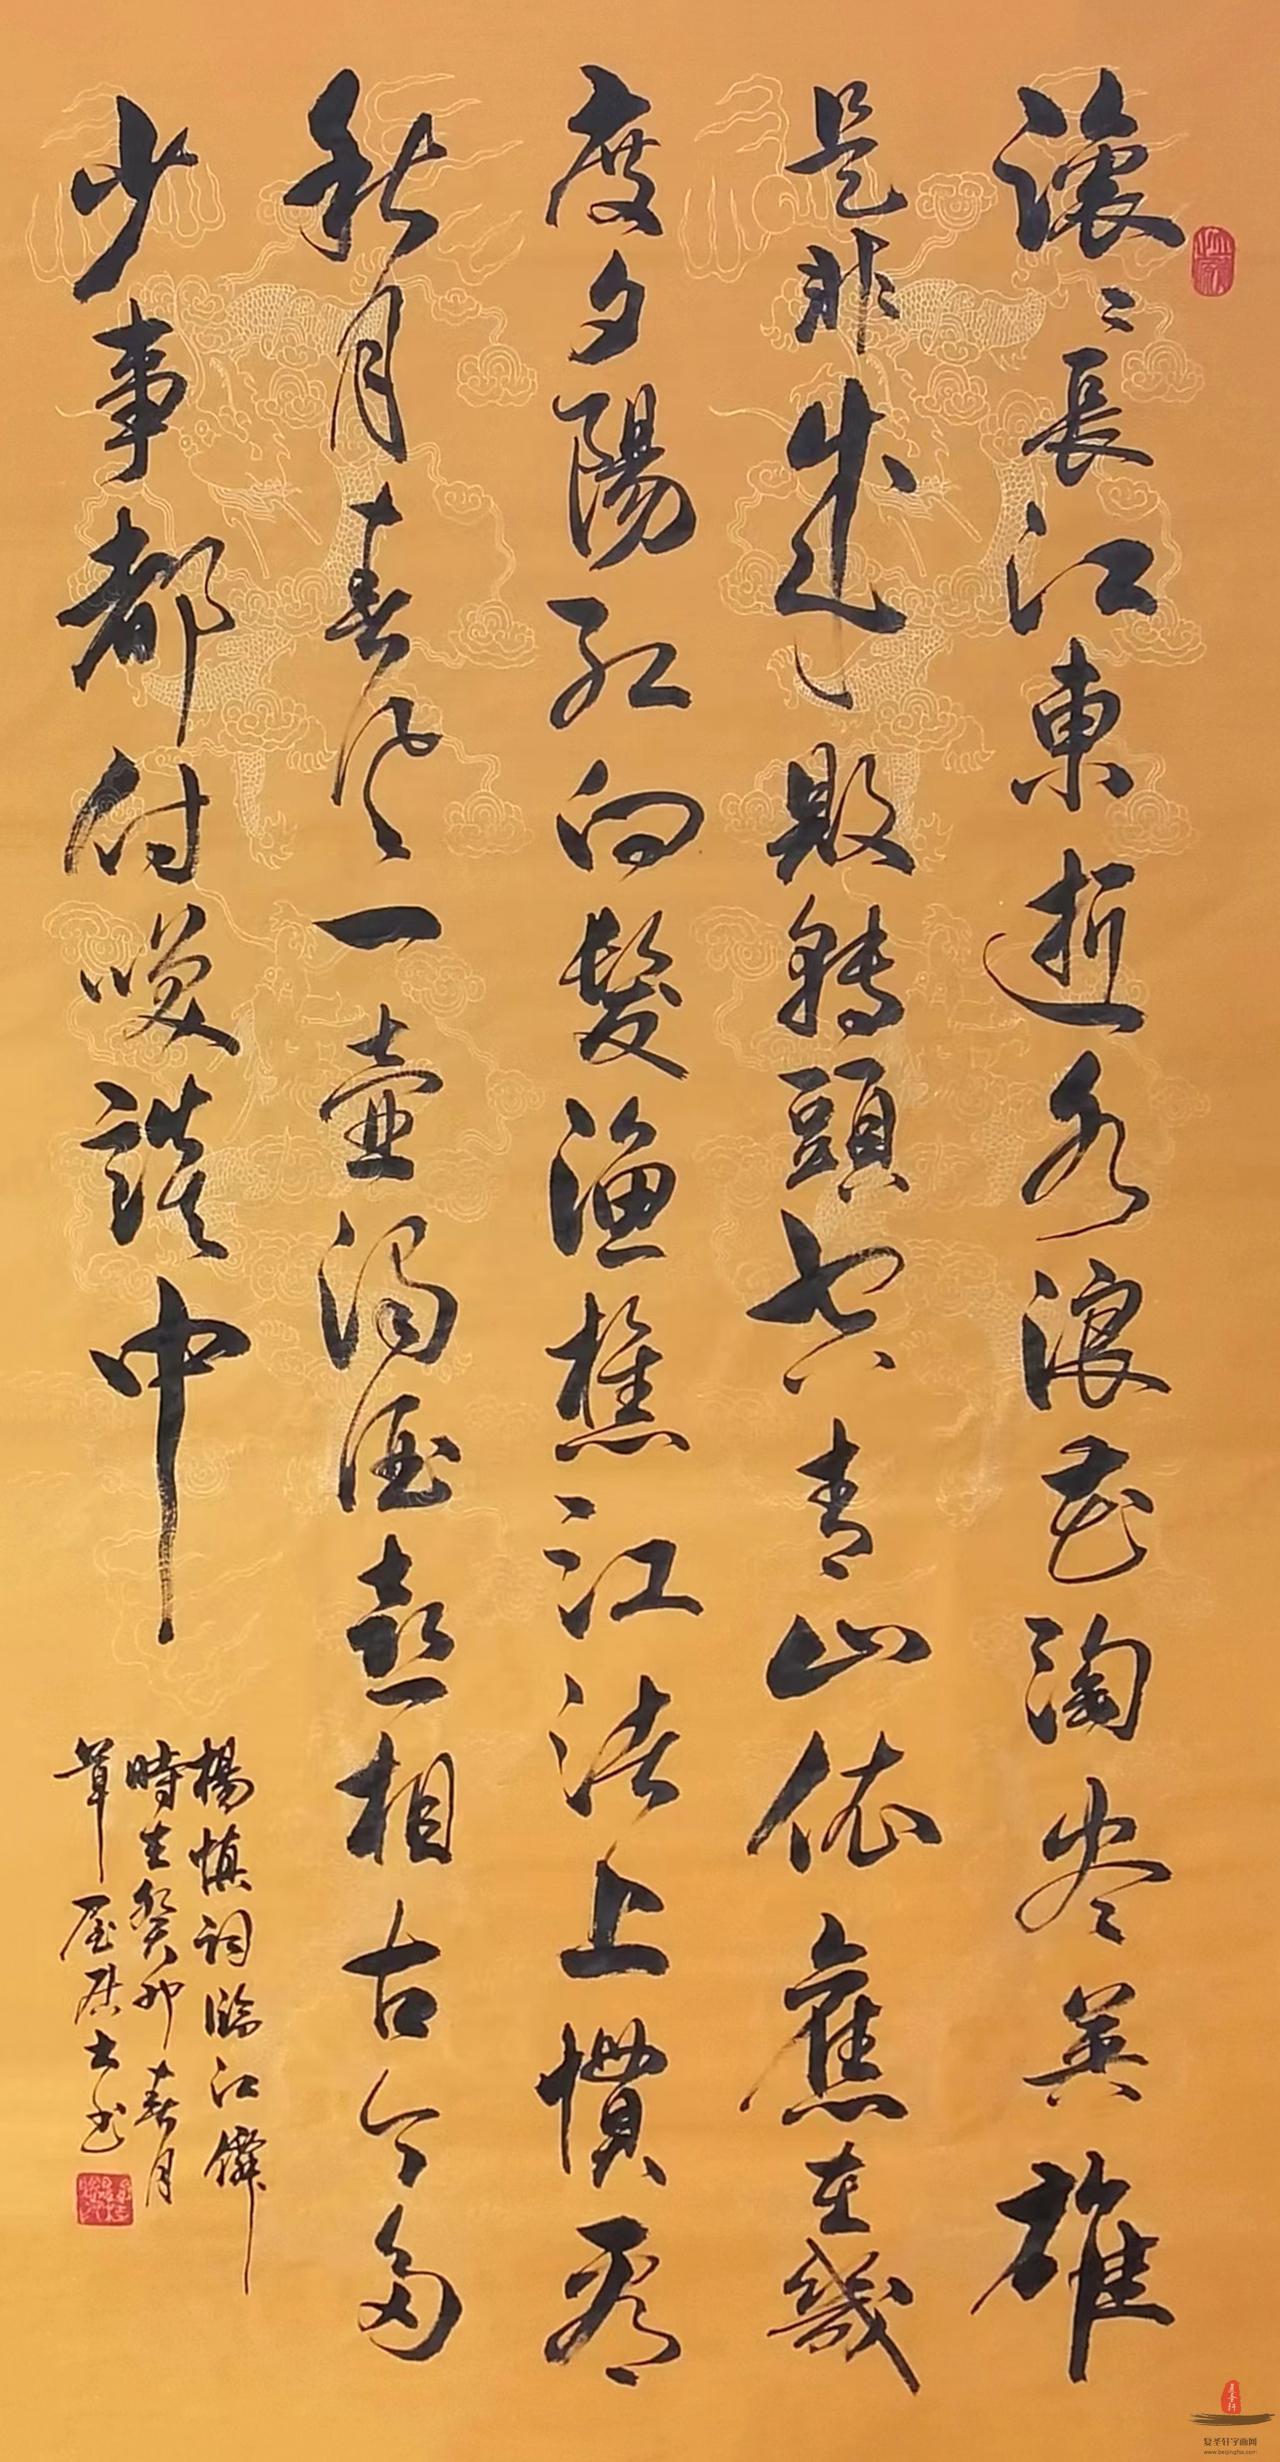 滚〻長江東逝水浪花淘尽英雄
是非成敗轉頭空青山依應在幾
度夕陽紅白髮漁樵江渚上慣看
秋月春風一壺濁酒喜相古今多
少事都付咲談中
楊慎詞臨江僊
時在癸卯春月
草屋居士书
复圣轩
复圣轩字画网